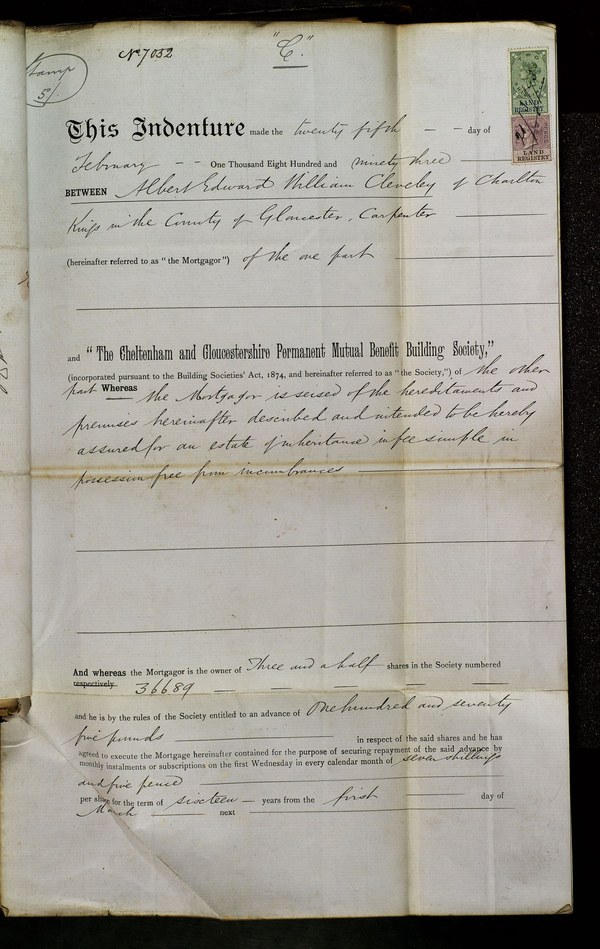 Nº 7032
"C."
Stamp
5/
LAND
REGISTRY
LAND
REGISTRY
This Indenture made the twenty fifth — — day of
February — — One Thousand Eight Hundred and ninety three
BETWEEN Albert Edward William Cleveley of Charlton
Kings in the County of Gloucester, Carpenter
(hereinafter referred to as "the Mortgagor") of the one part
and "The Cheltenham and Gloucestershire Permanent Mutual Benefit Building Society,"
(incorporated pursuant to the Building Societies' Act, 1874, and hereinafter referred to as "the Society,") of the other
part Whereas the Mortgagor is seised of the hereditaments and
premises hereinafter described and intended to be hereby
assured for an estate of inheritance in fee simple in
possession free from incumbrances
And whereas the Mortgagor is the owner of Three and a half shares in the Society numbered
respectively 36689
and he is by the rules of the Society entitled to an advance of One hundred and seventy
five pounds in respect of the said shares and he has
agreed to execute the Mortgage hereinafter contained for the purpose of securing repayment of the said advance by
monthly instalments or subscriptions on the first Wednesday in every calendar month of seven shillings
and five pence
per share for the term of sixteen — years from the first day of
March next